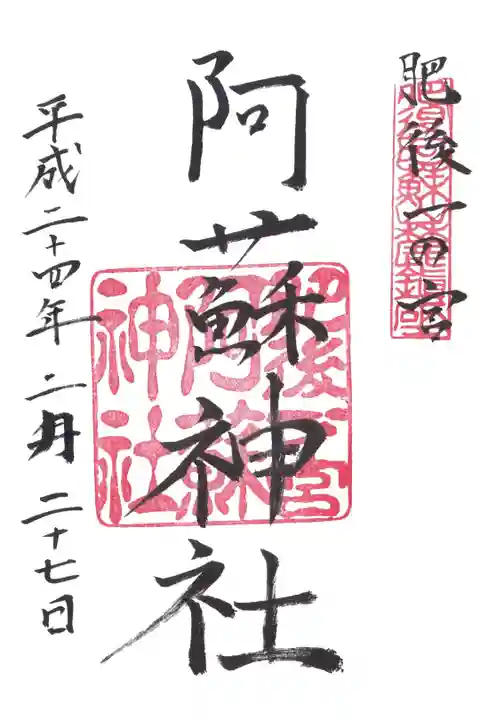 肥後一の宮
阿蘇神社
平成二十四年二月二十七日
肥後一宮
阿蘇
神社